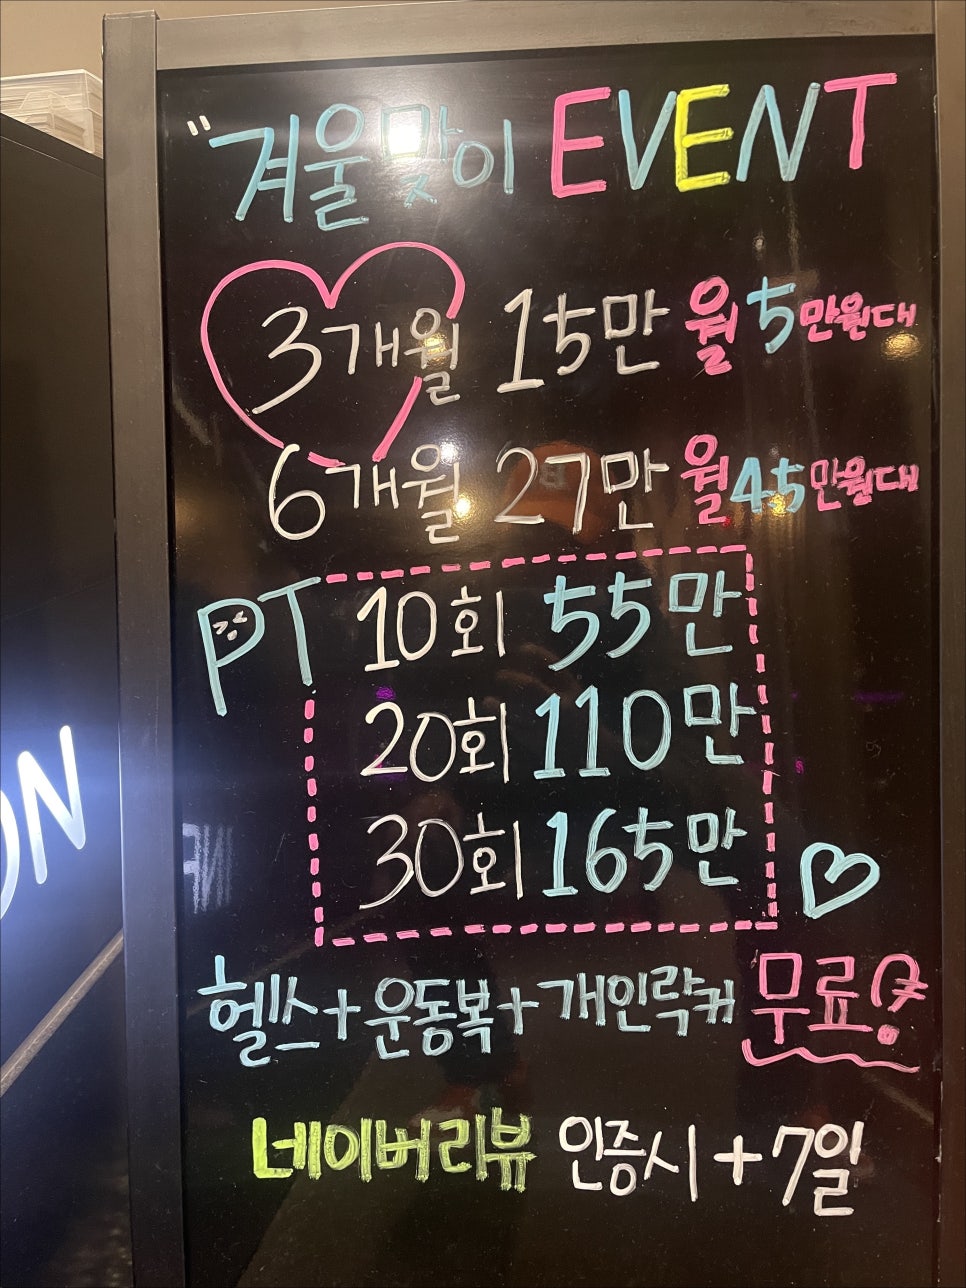 "겨울맞이 EVENT
3개월 15만 월5만원대
6개월 27만 월45만원대
PT 10회 55만
20회 110만
30회 165만
헬스+운동복+개인락커 무료?
네이버리뷰 인증시 +7일
ON